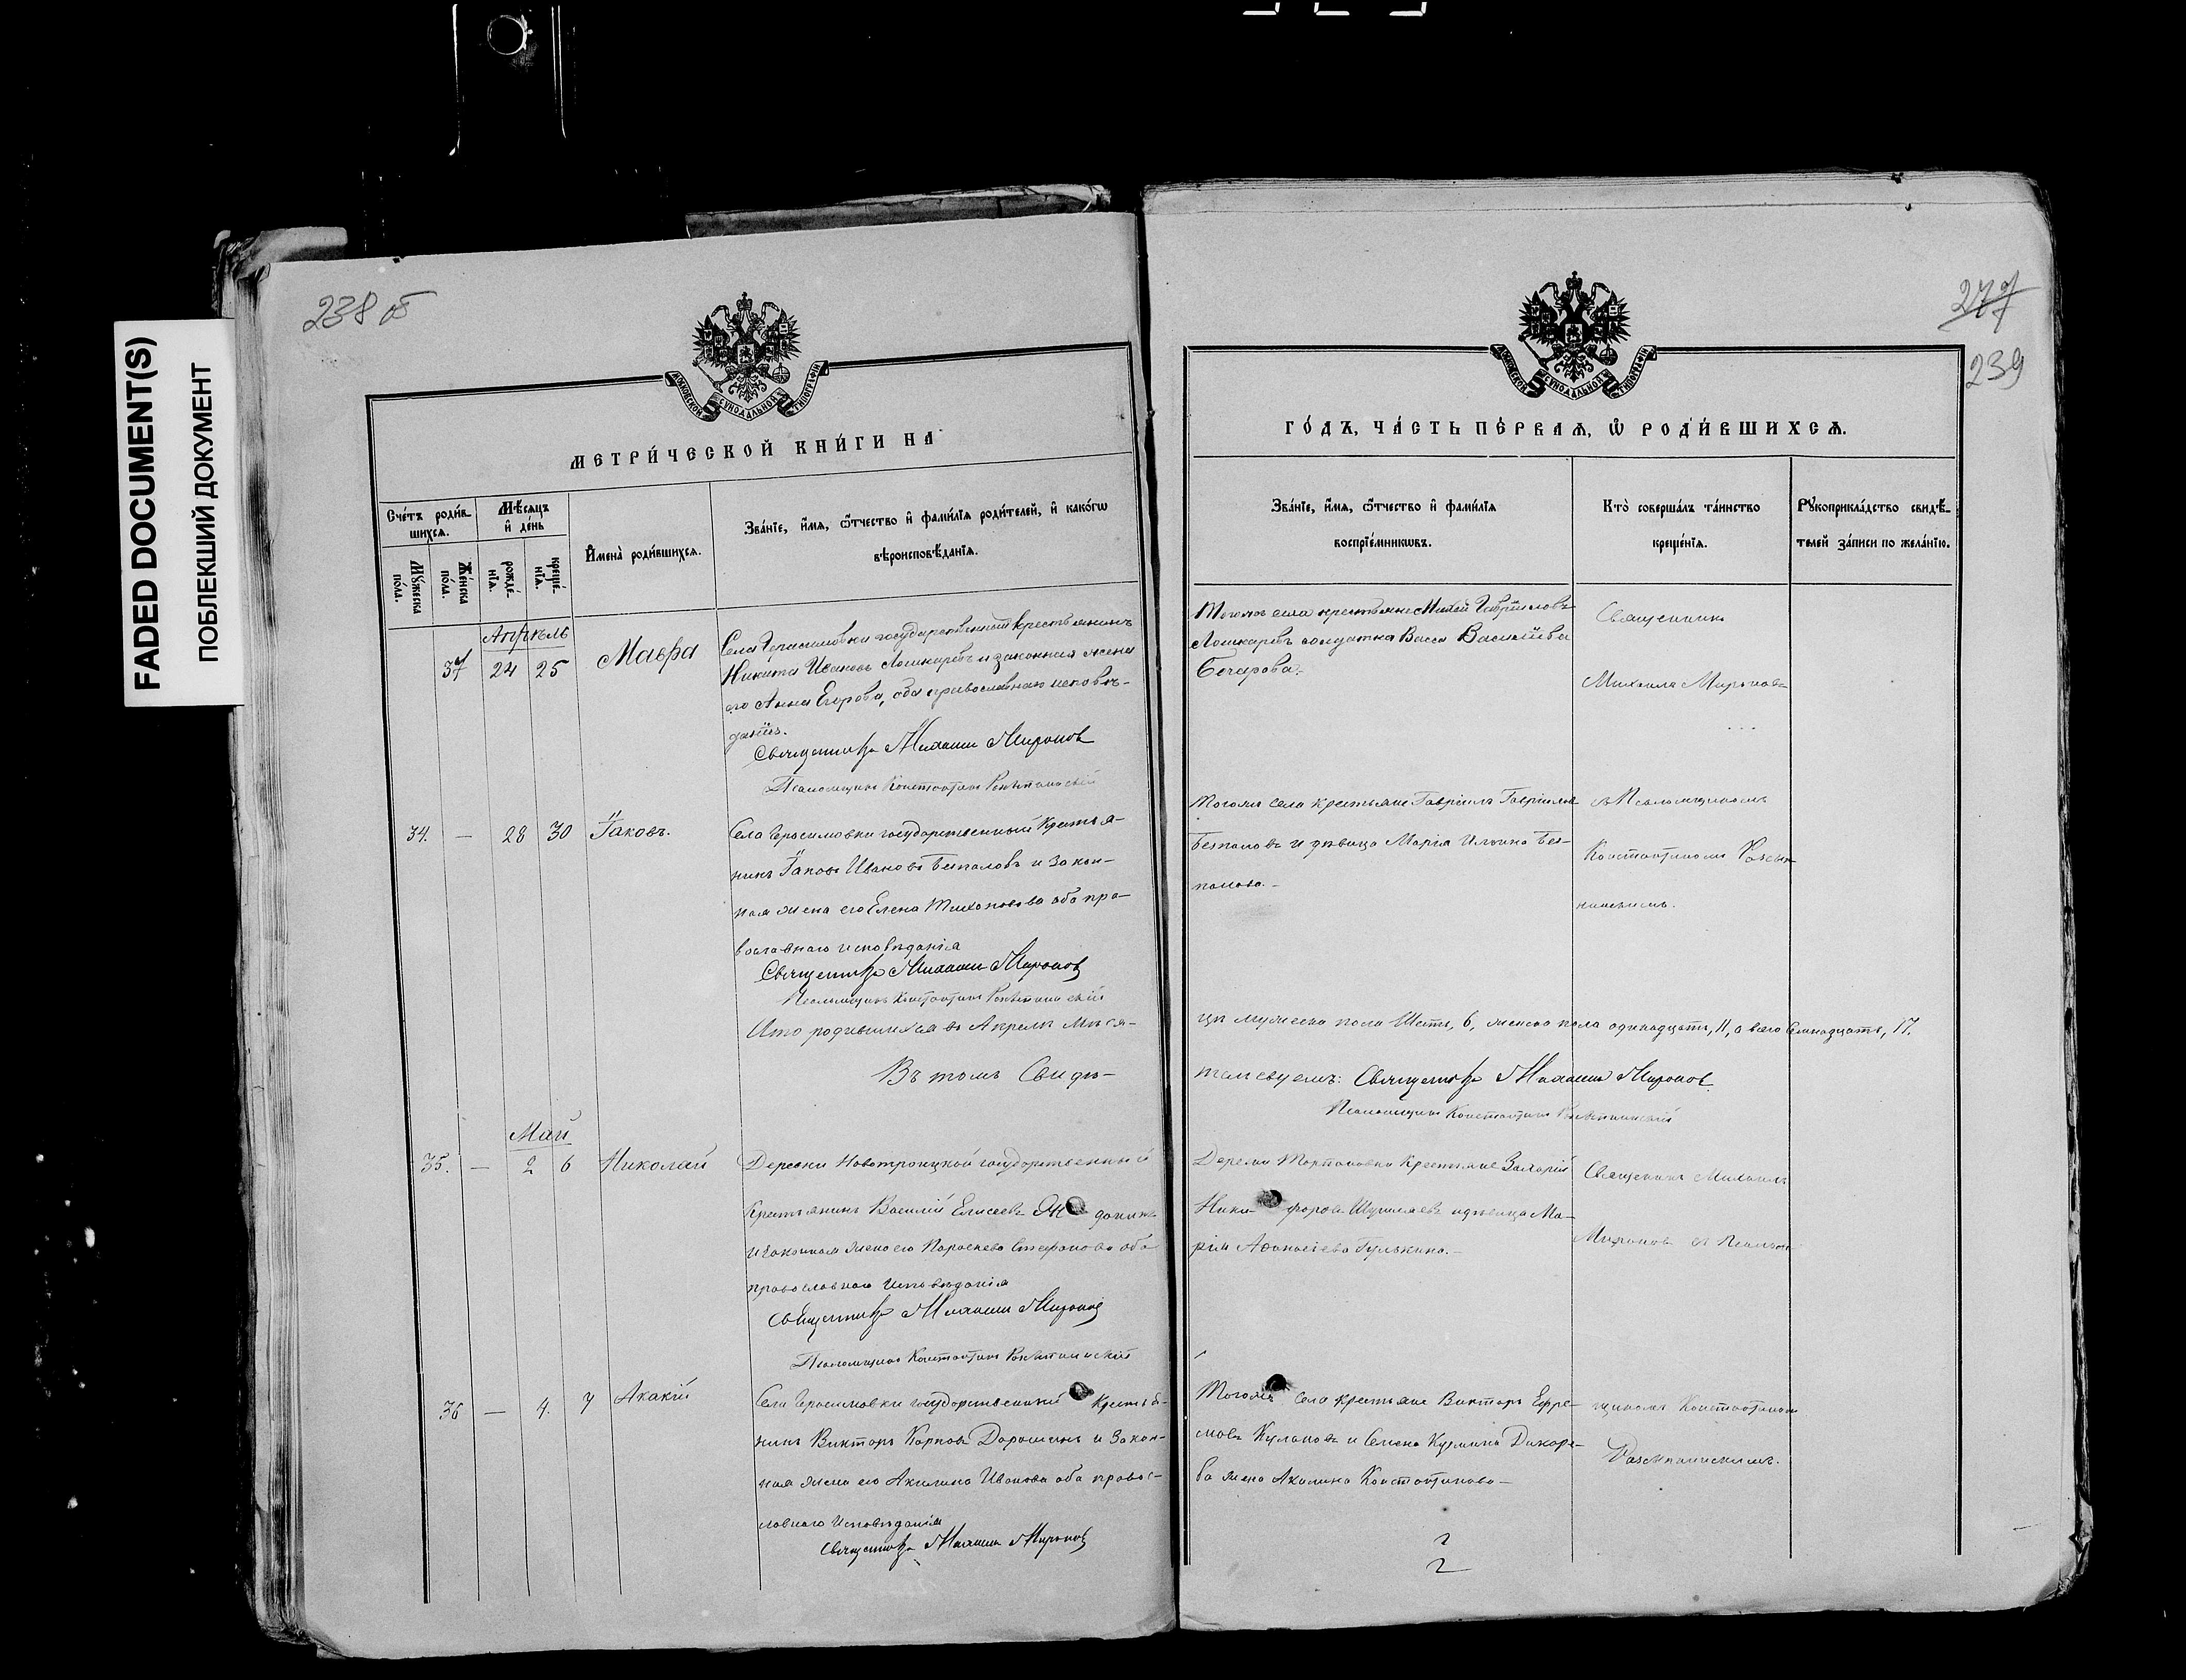 FADED DOCUMENT(S)
ПОБЛЕКШИЙ ДОКУМЕНТ
238 об
МОСКОВСКОЙ СУНОДАЛЬНОЙ ТИПОГРАФІИ
МЕТРИ́ЧЕСКОЙ КНИ́ГИ НА
Сче́тъ роди́в-
шихсѧ.
Мѣ́сѧцъ
и҆ де́нь
И҆мена̀ роди́вшихсѧ.
Зва́нїе, и҆́мѧ, ѻ҆́тчество и҆ фами́лїѧ роди́телей, и҆ како́гѡ
вѣроисповѣ́данїѧ.
Мꙋ́жеска
по́ла.
Же́нска
по́ла.
рожде́-
нїѧ.
креще́-
нїѧ.
Апрѣль
37 24 25 Мавра
Села Герасимовки государственный крестьянинъ
Никита Ивановъ Лошкаревъ и законная жена
его Анна Егорова, оба православнаго исповѣ-
данія.
Священникъ Михаилъ Миронов
Псаломщикъ Константинъ
34. — 28 30 Іаковъ.
Села Герасимовки государственный Крестья-
нинъ Іаковъ Ивановъ Беспаловъ и закон-
ная жена его Елена Тихоновова оба пра-
вославнаго исповѣданія
Священникъ Михаилъ Миронов
Псаломщикъ Константинъ
Итого родившихся въ Апрелѣ мѣся-
Въ томъ Свидѣ-
Май
35. — 2 6 Николай
Деревни Новотроицкой государственный
Крестьянинъ Василій Елисеевъ
и законная жена его Параскева Стефанова оба
православнаго исповѣданія
Священникъ Михаилъ Миронов
Псаломщикъ Константинъ
36 — 4. 7 Акакій
Села Герасимовки государственный Крестья-
нинъ Викторъ Карповъ Дорошинъ и закон-
ная жена его Акилина Иванова оба правос-
лавнаго исповѣданія
Священникъ Михаилъ Миронов
277
239
МОСКОВСКОЙ СУНОДАЛЬНОЙ ТИПОГРАФІИ
ГО́ДЪ, ЧА́СТЬ ПЕ́РВАѦ, Ѽ РОДИ́ВШИХСѦ.
Зва́нїе, и҆́мѧ, ѻ҆́тчество и҆ фами́лїѧ
воспрїе́мникѡвъ.
Кто̀ соверша́лъ та́инство
креще́нїѧ.
Рꙋкоприкла́дство свидѣ́-
телей за́писи по жела́нїю.
Тогоже села крестьяне Гавріиловъ
Лошкаревъ солдатка Васса Василіева
Бочарова.
Священникъ
Михаилъ Мироновъ
Тогоже села крестьяне Гавріилъ Гавріиловъ
Беспаловъ и дѣвица Марія Ильина Бес-
палова.—
съ Псаломщикомъ
Константиномъ
цѣ мужеска пола Шесть, 6, женска пола одинадцать, 11, а всего Семнадцать, 17.
тельствуемъ: Священникъ Михаилъ Миронов
Псаломщикъ Константинъ
Деревни Крестьяне Захарій
Никифоровъ и дѣвица Ма-
рія Афанасіева Гулькина.—
Священникъ Михаилъ
Мироновъ съ Псалом-
Тогоже села крестьяне Викторъ Ефре-
мовъ Кулаковъ и Семена Кузмина Дикаре-
ва жена Акилина Константинова—
щикомъ Константиномъ